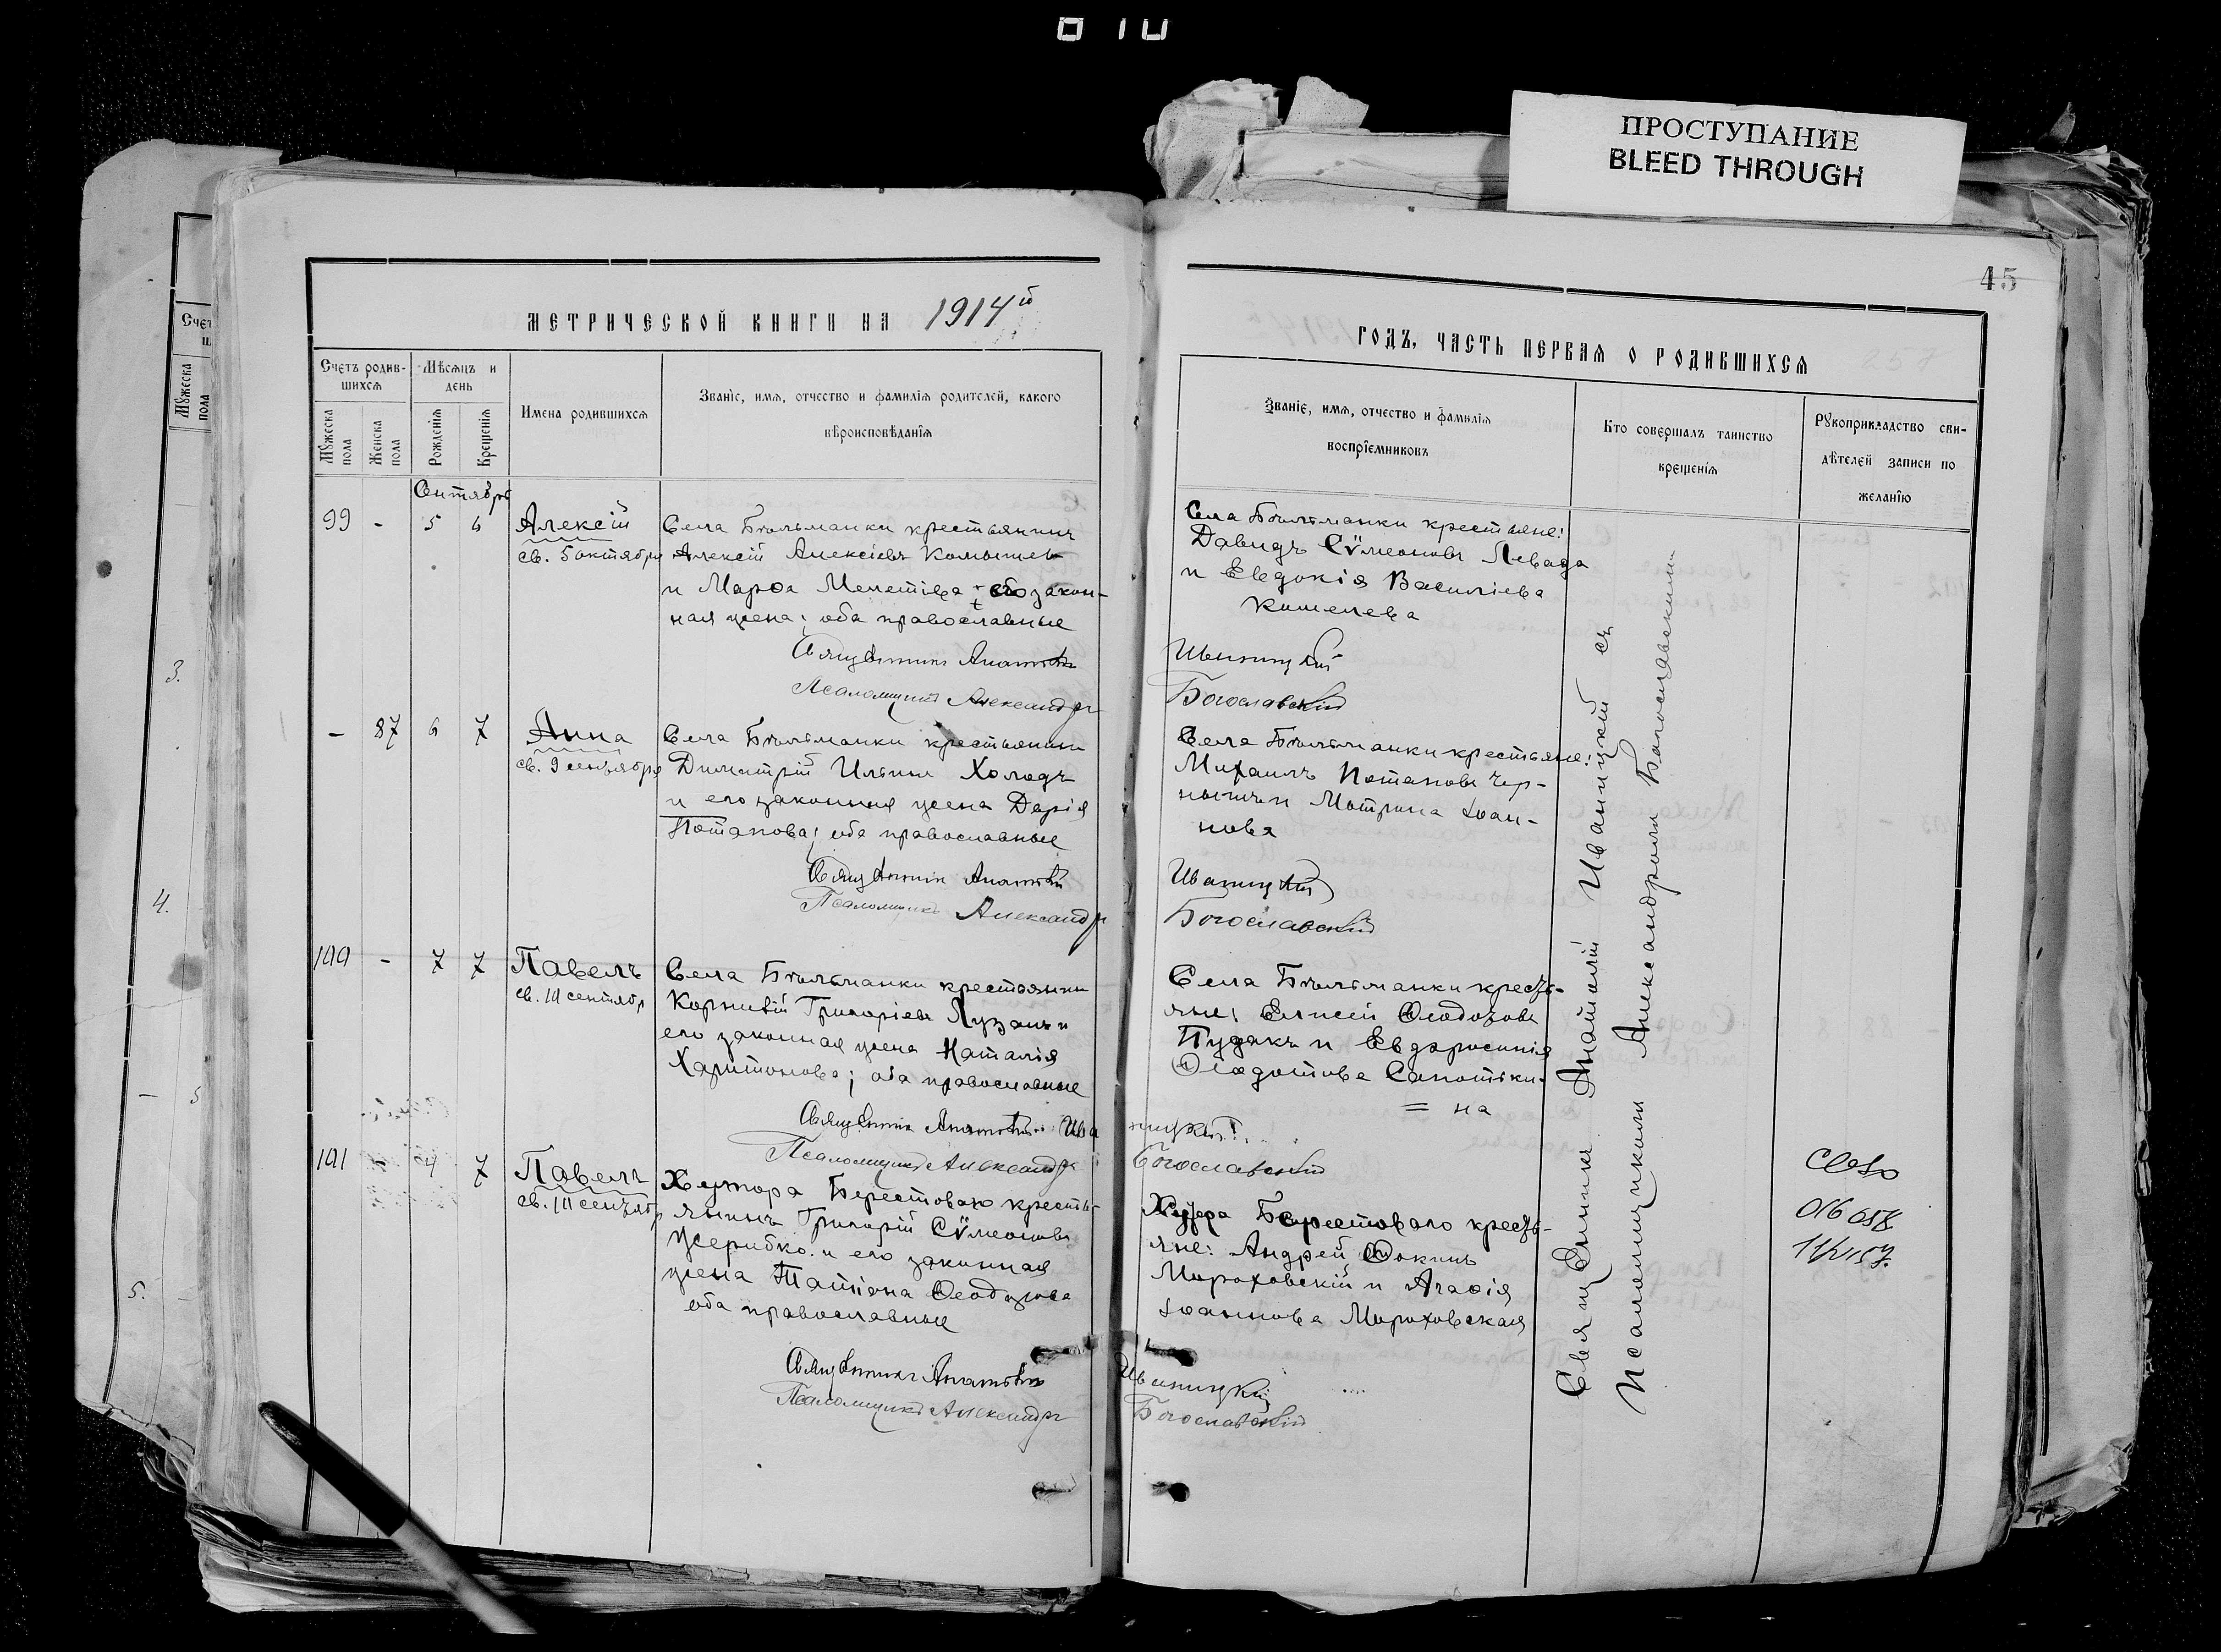 010
ПРОСТУПАНИЕ
BLEED THROUGH
45
МЕТРИЧЕСКОЙ КНИГИ НА 1914й
ГОДЪ, ЧАСТЬ ПЕРВАЯ О РОДИВШИХСЯ
Счетъ родив-
шихся
Мѣсяцъ и
день
Мужеска
пола
Женска
пола
Рожденія
Крещенія
Имена родившихся
Званіе, имя, отчество и фамилія родителей, какого
вѣроисповѣданія
Званіе, имя, отчество и фамилія
воспріемниковъ
Кто совершалъ таинство
крещенія
Рукоприкладство сви-
дѣтелей записи по
желанію
Сентябрь
99 - 5 6
Алексій
св. 5 октября
Села Бѣльманки крестьянинъ
Алексій Алексіевъ
и Марѳа Мелетіева его закон-
ная жена; оба православные
Священникъ Анатолій
Псаломщикъ Александръ
Села Бѣльманки крестьяне:
Давидъ Сѵмеоновъ Левада
и Евдокія Василіева
Кошелева
Иваницкій
Богославскій
- 87 6 7
Анна
св. 9 сентября
Села Бѣльманки крестьянинъ
Димитрій Ильинъ Холодъ
и его законная жена Дарія
Потапова; оба православные
Священникъ Анатолій
Псаломщикъ Александръ
Села Бѣльманки крестьяне:
Михаилъ Потаповъ Чер-
нышъ и Матрона Іоан-
нова
Иваницкій
Богославскій
100 - 7 7
Павелъ
св. 10 сентябр
Села Бѣльманки крестьянинъ
Корнилій Григоріевъ Лузанъ и
его законная жена Наталія
Харитонова; оба православные
Священникъ Анатолій Ива
Псаломщикъ Александръ
Села Бѣльманки кресть-
яне: Елисей Ѳеодоровъ
Пудакъ и Евфросинія
Ѳеодотова Сапотьки-
= на
ницкій
Богославскій
101 - 4 7
Павелъ
св. 10 сентябр
Хутора Берестоваго кресть-
янинъ Григорій Сѵмеоновъ
Жерибко и его законная
жена Татіана Ѳеодорова
оба православные
Священникъ Анатолій
Псаломщикъ Александръ
Хутора Берестоваго кресть-
яне: Андрей Ѳокинъ
Мороховскій и Агаѳія
Іоаннова Мороховская
Иваницкій
Богославскій
Священникъ Анатолій Иваницкій съ
Псаломщикомъ Александромъ Богославскимъ
3.
4.
5.